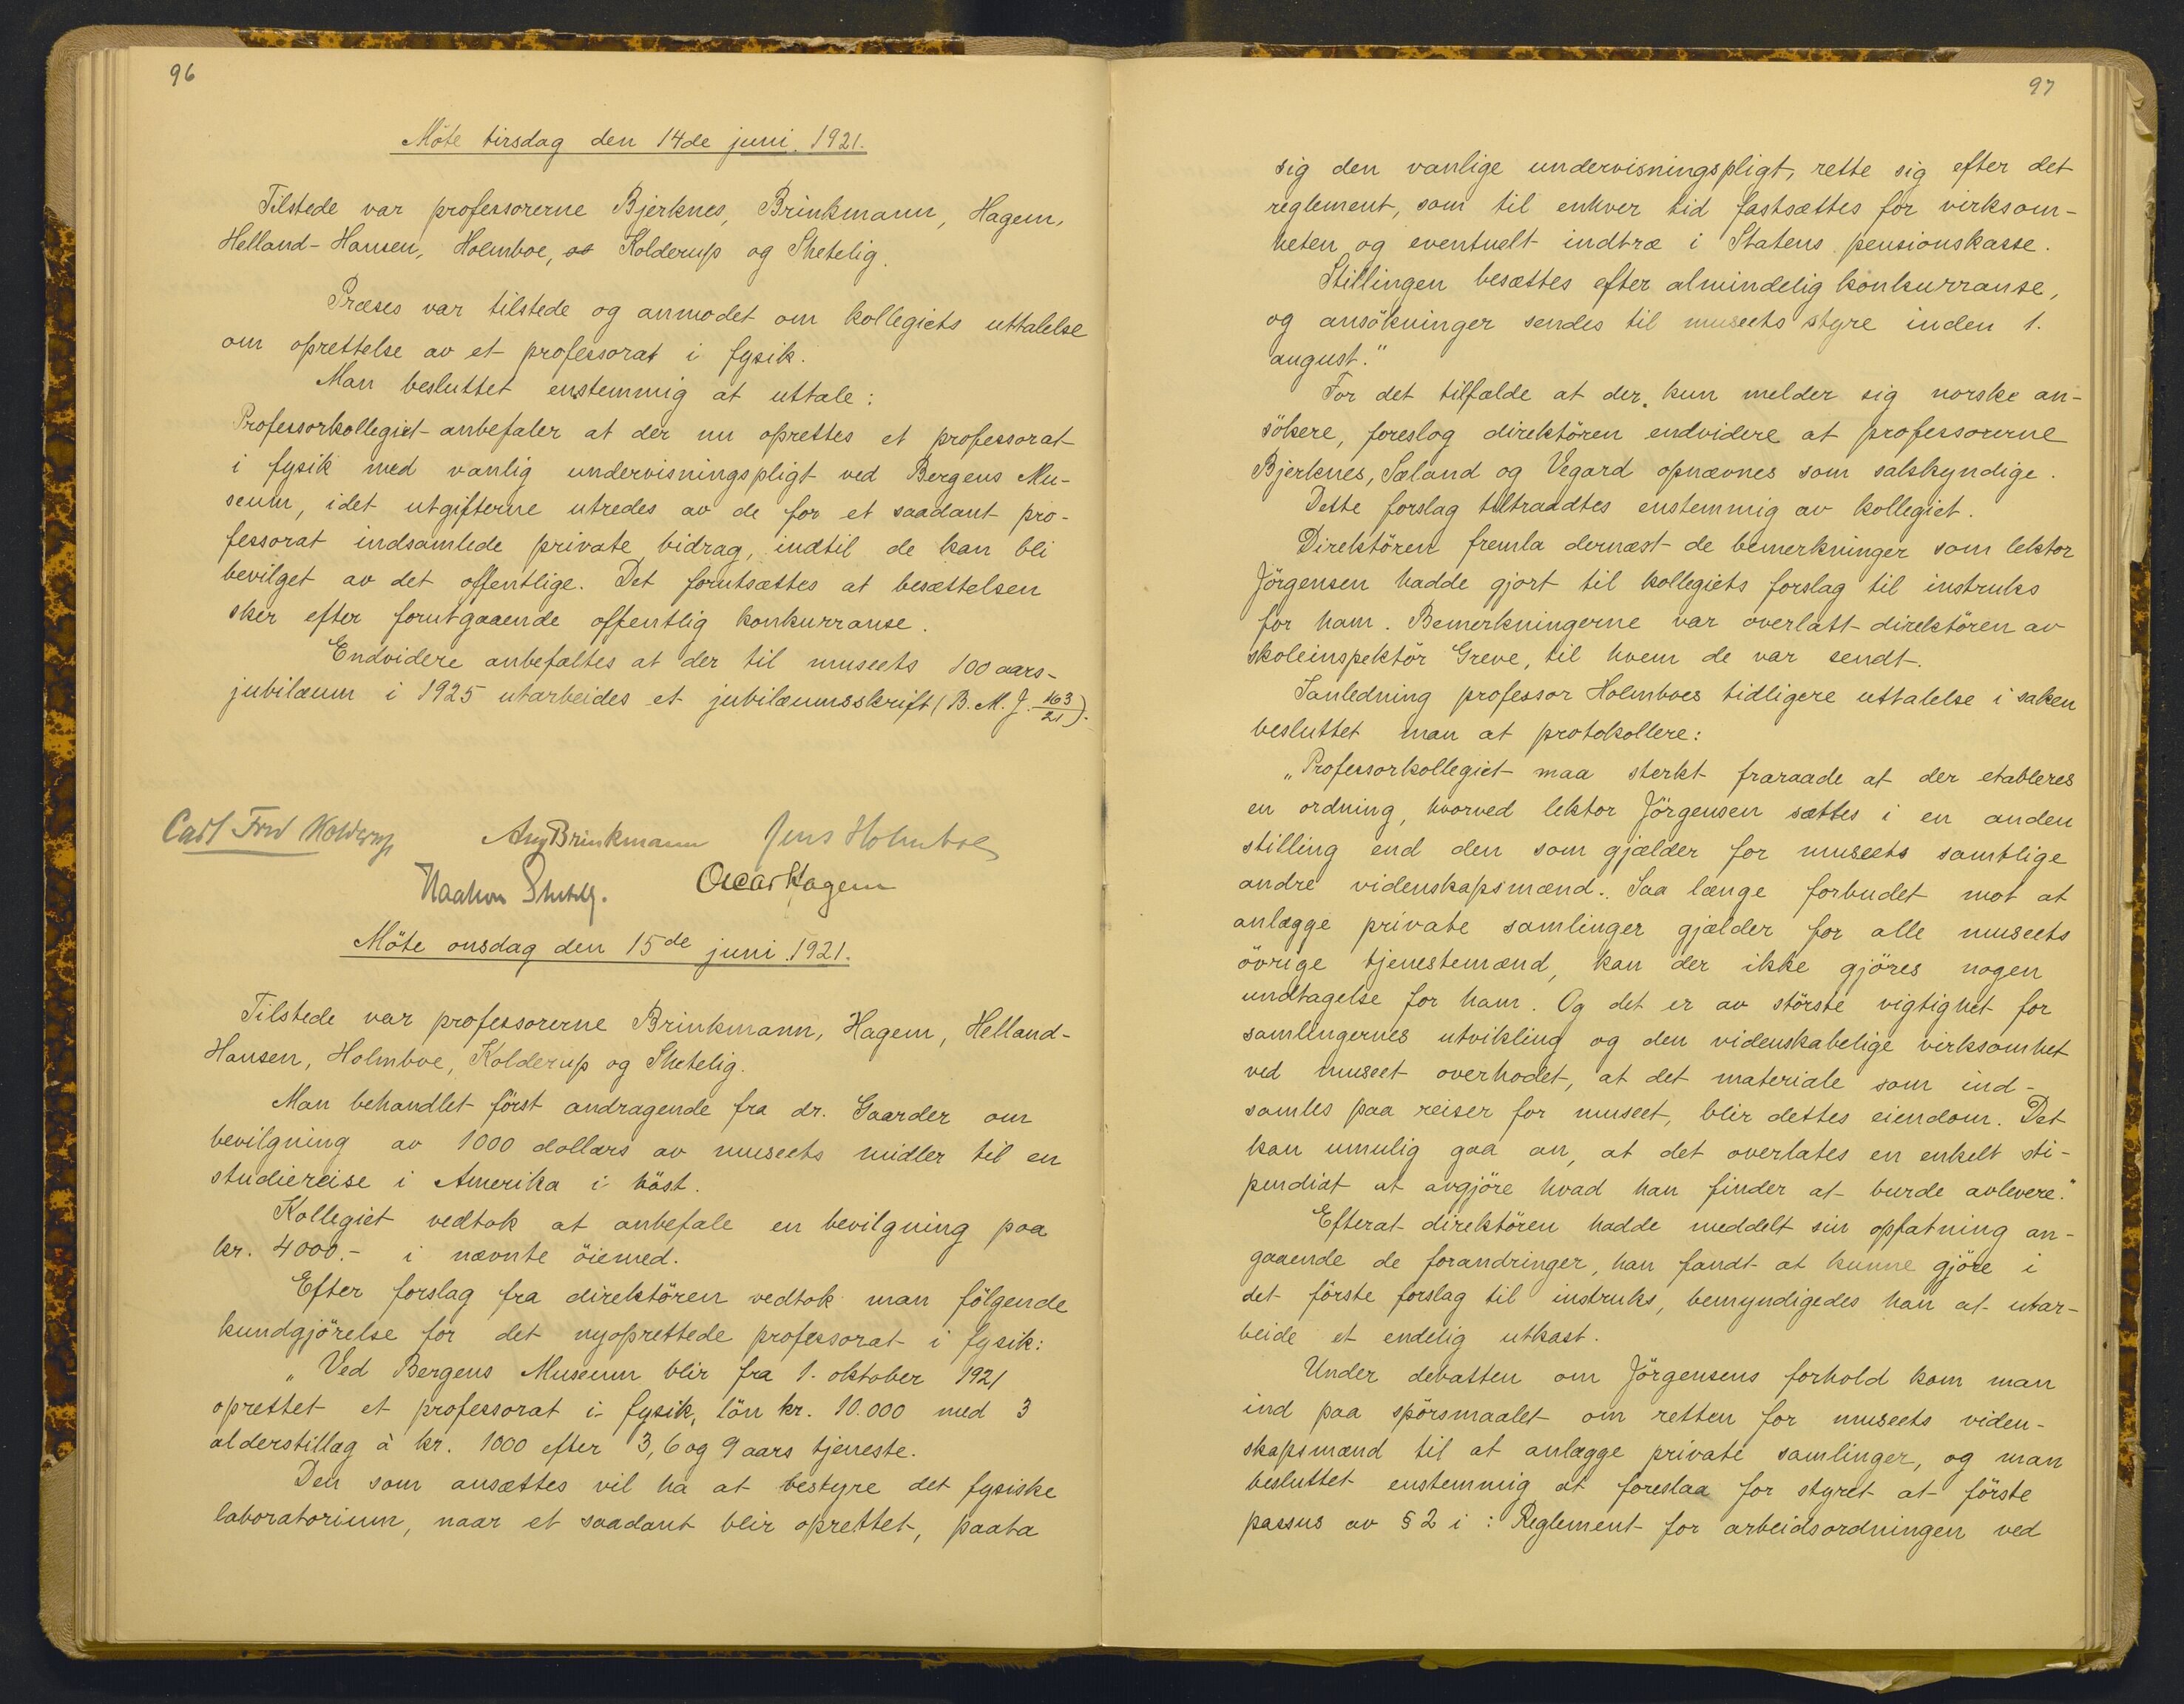 96
Möte tirsdag den 14de juni. 1921.
Tilstede var professorerne Bjerknes, Brinkmann, Hagem,
Helland-Hansen, Holmboe, og Kolderup og Shetelig.
Præses var tilstede og anmodet om kollegiets uttalelse
om oprettelse av et professorat i fysik.
Man besluttet enstemmig at uttale:
Professorkollegiet anbefaler at der nu oprettes et professorat
i fysik med vanlig undervisningspligt ved Bergens Mu-
seum, idet utgifterne utredes av de for et saadant pro-
fessorat indsamlede private bidrag, indtil de kan bli
bevilget av det offentlige. Det forutsættes at besættelsen
sker efter forutgaaende offentlig konkurranse.
Endvidere anbefaltes at der til museets 100 aars-
jubilæum i 1925 utarbeides et jubilæumsskrift (B. M. J. 163/21).
Carl Fred Kolderup Aug Brinkmann Jens Holmboe
Haakon Shetelig. Oscar Hagem
Möte onsdag den 15de juni 1921.
Tilstede var professorerne Brinkmann, Hagem, Helland-
Hansen, Holmboe, Kolderup og Shetelig.
Man behandlet först andragende fra dr. Gaarder om
bevilgning av 1000 dollars av museets midler til en
studiereise i Amerika i höst.
Kollegiet vedtok at anbefale en bevilgning paa
kr. 4000.- i nævnte öiemed.
Efter forslag fra direktören vedtok man fölgende
kundgjörelse for det nyoprettede professorat i fysik:
„Ved Bergens Museum blir fra 1. oktober 1921
oprettet et professorat i fysik, lön kr. 10.000 med 3
alderstillæg à kr. 1000 efter 3, 6 og 9 aars tjeneste.
Den som ansættes vil ha at bestyre det fysiske
laboratorium, naar et saadant blir oprettet, paata
97
sig den vanlige undervisningspligt, rette sig efter det
reglement, som til enhver tid fastsættes for virksom-
heten og eventuelt indtræ i Statens pensionskasse.
Stillingen besættes efter almindelig konkurranse,
og ansökninger sendes til museets styre inden 1.
august."
For det tilfælde at der kun melder sig norske an-
sökere, foreslog direktören endvidere at professorerne
Bjerknes, Sæland og Vegard opnævnes som sakkyndige.
Dette forslag tiltraadtes enstemmig av kollegiet.
Direktören fremla dernæst de bemerkninger som lektor
Jörgensen hadde gjort til kollegiets forslag til instruks
for ham. Bemerkningerne var overlatt direktören av
skoleinspektör Greve, til hvem de var sendt.
I anledning professor Holmboes tidligere uttalelse i saken
besluttet man at protokollere:
„Professorkollegiet maa sterkt fraraade at der etableres
en ordning, hvorved lektor Jörgensen sættes i en anden
stilling end den som gjælder for museets samtlige
andre videnskapsmænd. Saa længe forbudet mot at
anlægge private samlinger gjælder for alle museets
övrige tjenestemænd, kan der ikke gjöres nogen
undtagelse for ham. Og det er av störste vigtighet for
samlingernes utvikling og den videnskabelige virksomhet
ved museet overhodet, at det materiale som ind-
samles paa reiser for museet, blir dettes eiendom. Det
kan umulig gaa an, at det overlates en enkelt sti-
pendiat at avgjöre hvad han finder at burde avlevere."
Efterat direktören hadde meddelt sin opfatning an-
gaaende de forandringer, han fandt at kunne gjöre i
det förste forslag til instruks, bemyndigedes han at utar-
beide et endelig utkast.
Under debatten om Jörgensens forhold kom man
ind paa spörsmaalet om retten for museets viden-
skapsmænd til at anlægge private samlinger, og man
besluttet enstemmig at foreslaa for styret at förste
passus av § 2 i : Reglement for arbeidsordningen ved